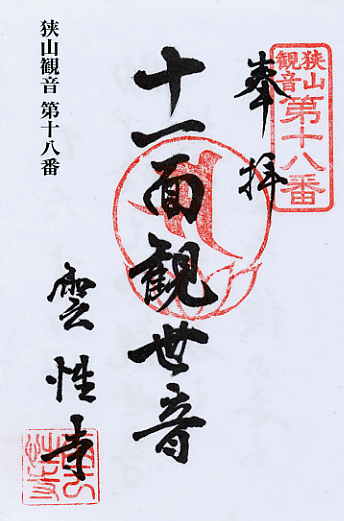 狭山
観音
第十八番
奉拝
十一面観世音
雲性寺
狭山観音 第十八番